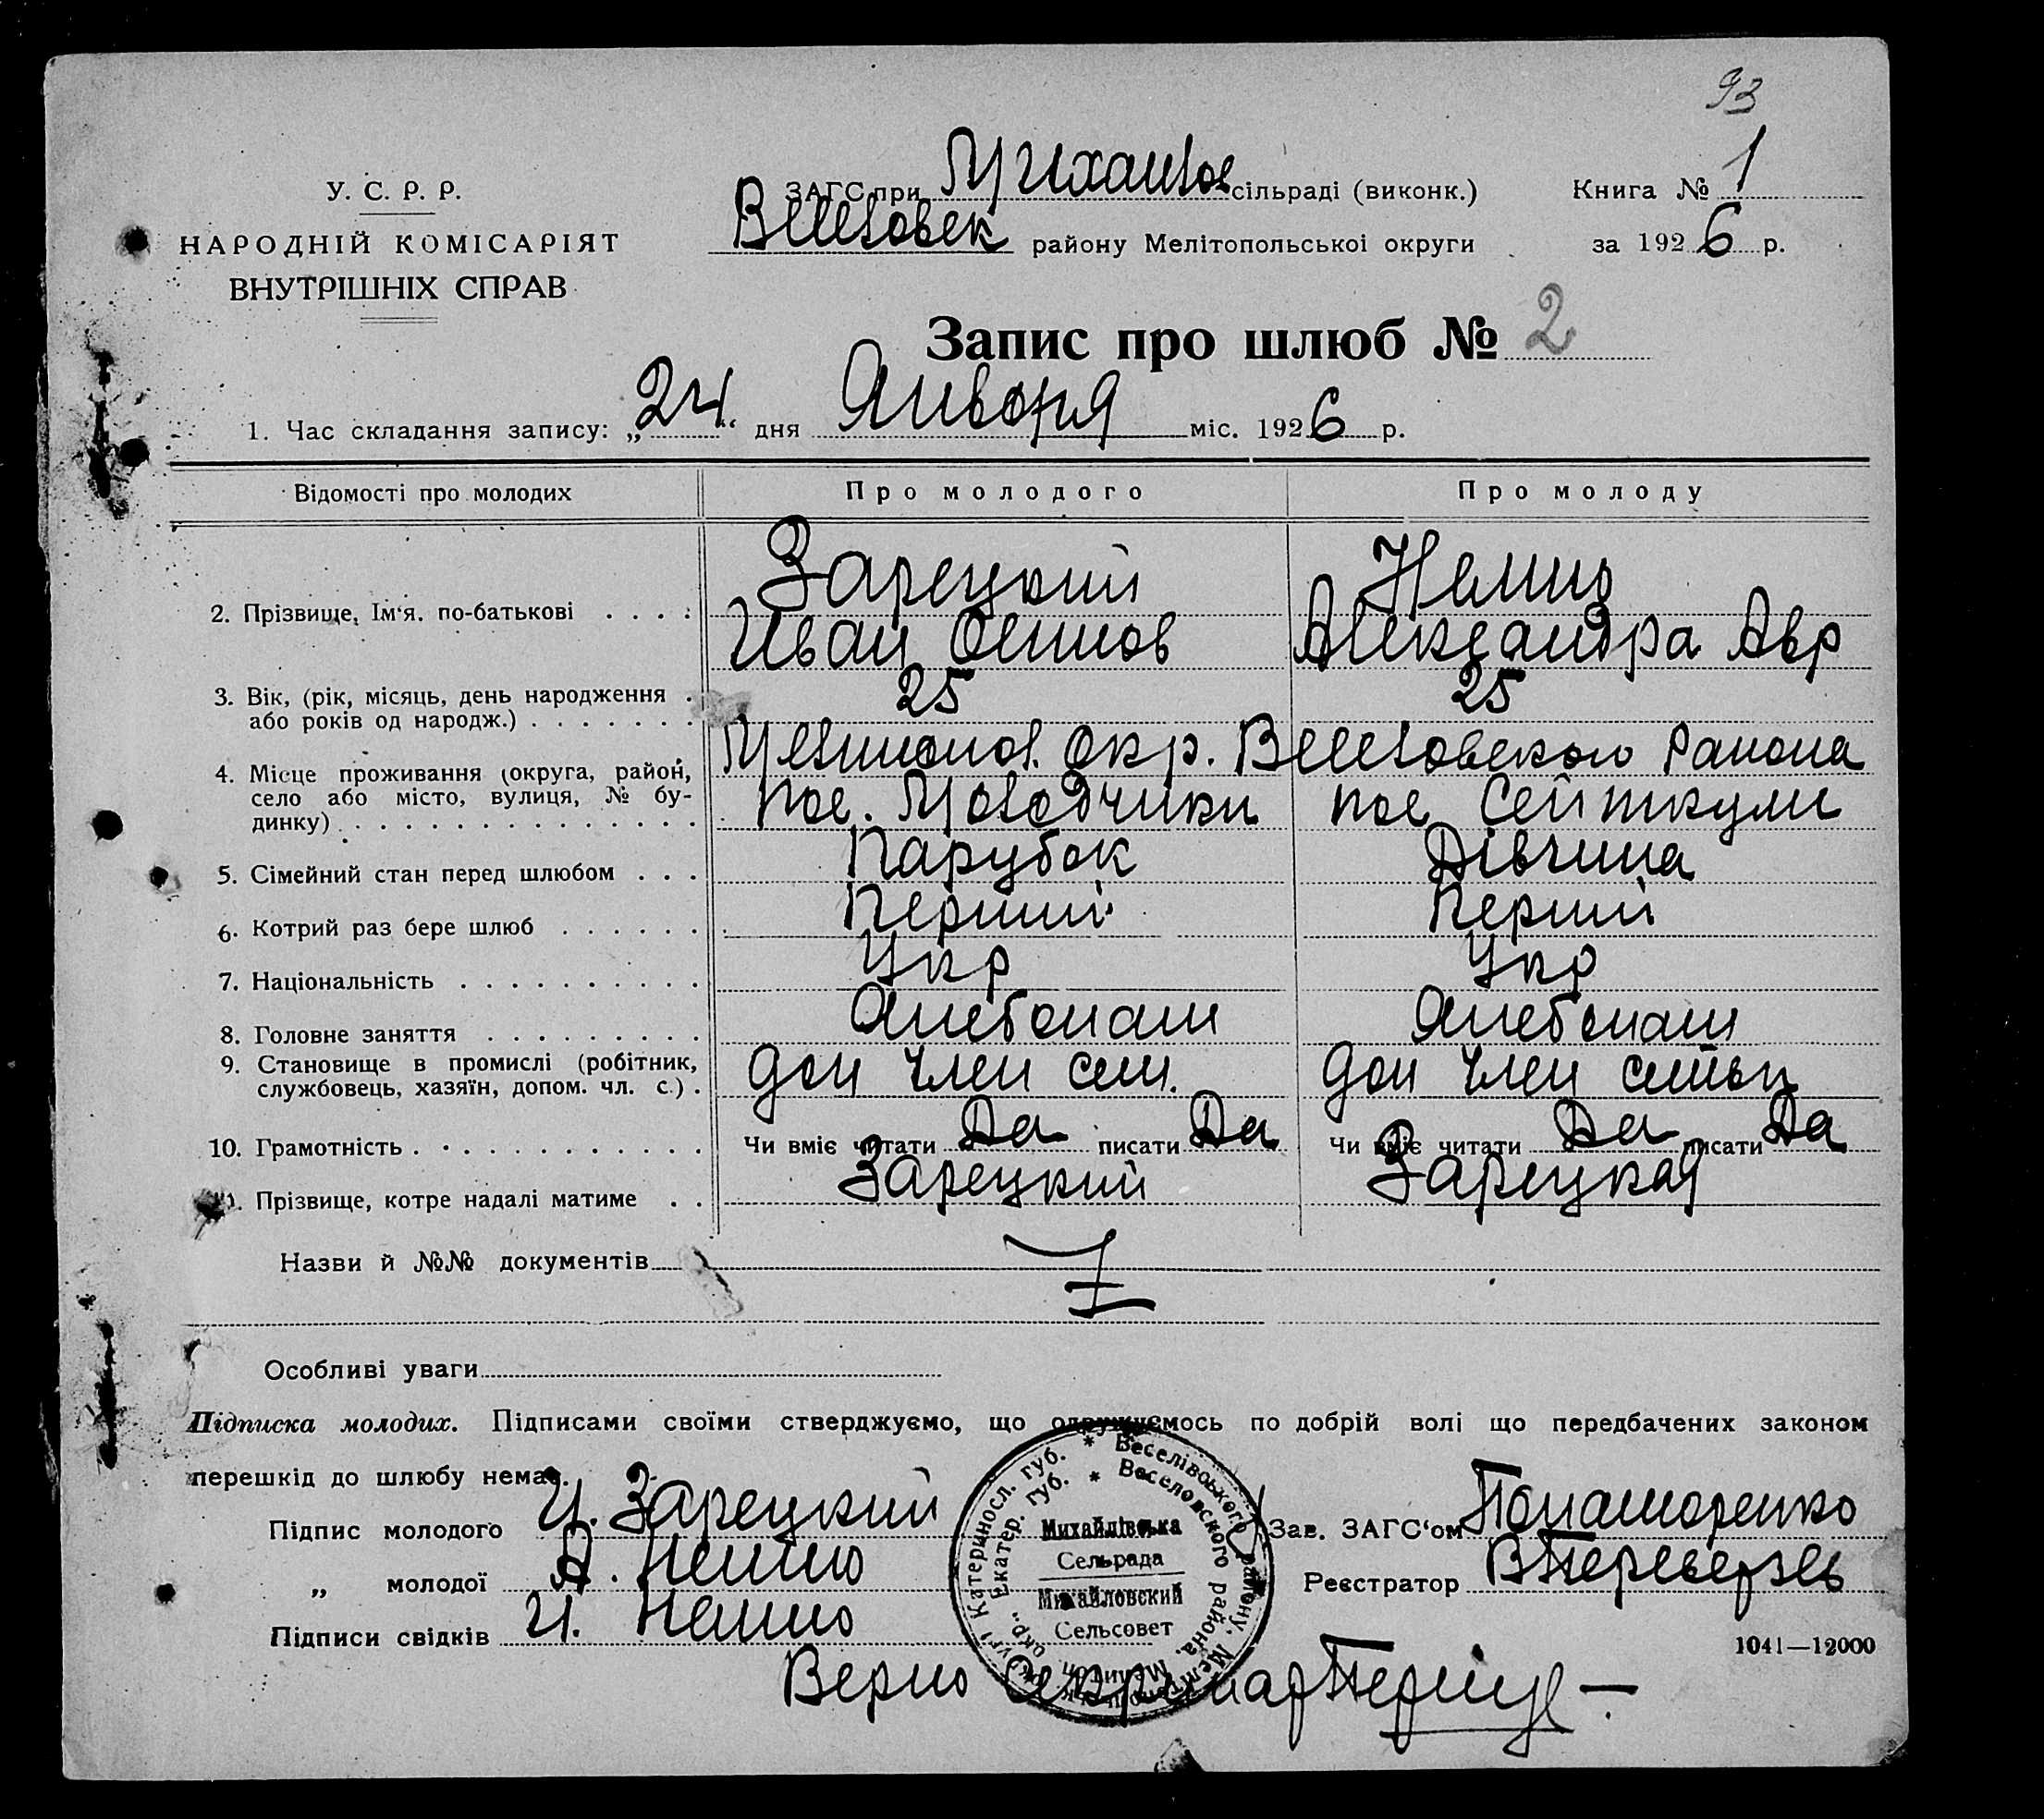 93
У. С. Р. Р.
НАРОДНІЙ КОМІСАРІЯТ
ВНУТРІШНІХ СПРАВ
ЗАГС при Михайлов сільраді (виконк.)
Веселовск району Мелітопольської округи
Книга № 1
за 1926 р.
Запис про шлюб № 2
1. Час складання запису: „24“ дня Января міс. 1926 р.
Відомості про молодих
Про молодого
Про молоду
2. Прізвище, Ім‘я. по-батькові . . . .
Зарецкий
Иван Осипов
Александра Авр
3. Вік, (рік, місяць, день народження .
або років од народж.) . . . . . . .
25
25
4. Місце проживання (округа, район,
село або місто, вулиця, № бу-
динку) . . . . . . . . . . . . . . .
Мелитопол. Окр. Веселовского Района
пос. Молодчики
пос Сейткули
5. Сімейний стан перед шлюбом . . .
Парубок
Дівчина
6. Котрий раз бере шлюб . . . . . .
Перший
Перший
7. Національність . . . . . . . . . .
Укр
Укр
8. Головне заняття . . . . . . . . .
Хлебопаш
Хлебопаш
9. Становище в промислі (робітник,
службовець, хазяїн, допом. чл. с.) .
доп член сем.
доп член
10. Грамотність . . . . . . . . . . . .
Чи вміє читати Да писати Да
Чи вміє читати Да писати Да
11. Прізвище, котре надалі матиме . .
Зарецкий
Зарецкая
Назви й №№ документів
Особливі уваги
Підписка молодих. Підписами своїми стверджуємо, що одружуємось по добрій волі що передбачених законом
перешкід до шлюбу немає.
Підпис молодого И. Зарецкий
„ молодої А.
Підписи свідків И.
Зав. ЗАГС‘ом Понаморенко
Реєстратор В Переверзев
1041—12000
Верно Секретар
Катериносл. губ. * Веселівського району, Мелітопільск. округі
Екатер. губ. * Веселовского района, Мелитоп. окр.
Михайлівська
Сельрада
Михайловский
Сельсовет